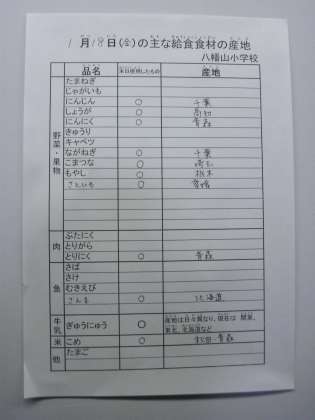 1月18日(金)の主な給食食材の産地
八幡山小学校
品名 本日使用したもの 産地
野菜・果物
たまねぎ
じゃがいも
にんじん ○ 千葉
しょうが ○ 高知
にんにく ○ 青森
きゅうり
キャベツ
ながねぎ ○ 千葉
こまつな ○ 埼玉
もやし ○ 栃木
さといも ○
肉
ぶたにく
とりがら
とりにく ○ 青森
魚
さば
さけ
むきえび
さんま ○ 北海道
牛乳 ぎゅうにゅう ○ 産地は日々異なり、現在は 関東、
東北、北海道など
米 こめ ○ 秋田・青森
他 たまご